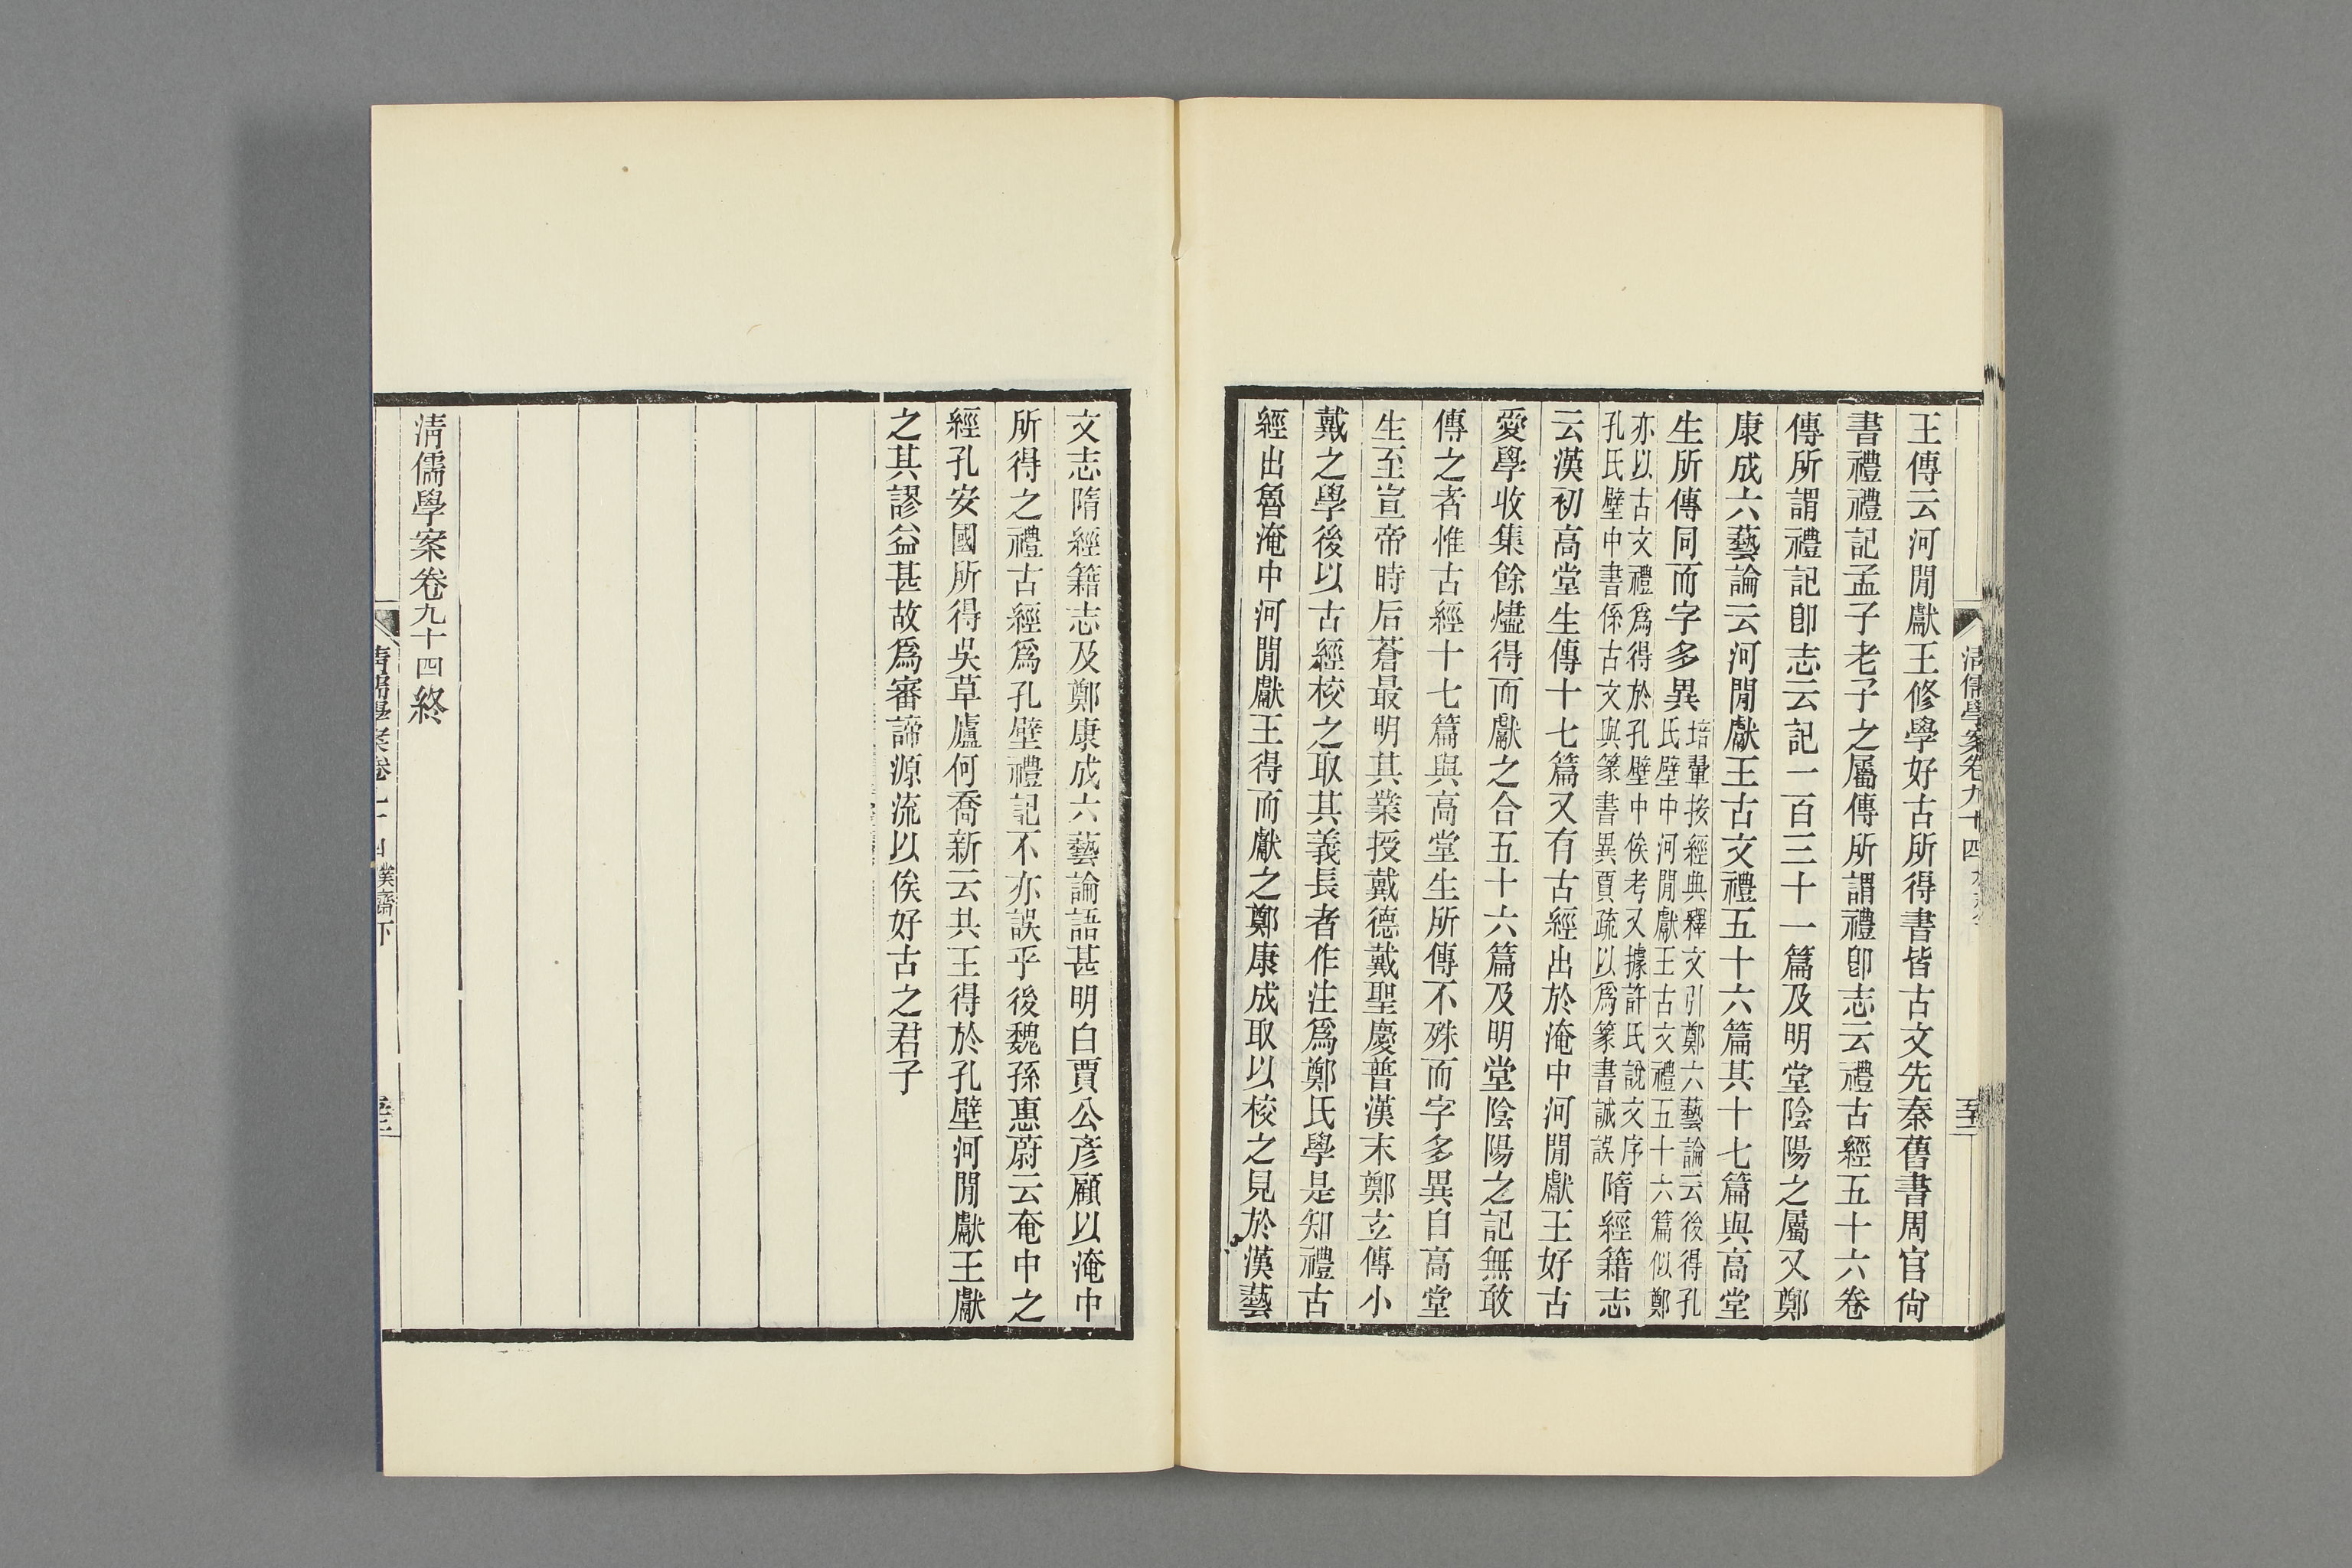 王傳云河閒獻王修學好古所得書皆古文先秦舊書周官尙
書禮禮記孟子老子之屬傳所謂禮卽志云禮古經五十六卷
傳所謂禮記卽志云記二百三十一篇及明堂陰陽之屬又鄭
康成六藝論云河閒獻王古文禮五十六篇其十七篇與高堂
生所傳同而字多異
培翬按經典釋文引鄭六藝論云後得孔
氏壁中河閒獻王古文禮五十六篇似鄭
亦以古文禮爲得於孔壁中俟考又據許氏說文序
孔氏壁中書係古文與篆書異賈疏以爲篆書誠誤
隋經籍志
云漢初高堂生傳十七篇又有古經出於淹中河閒獻王好古
愛學收集餘燼得而獻之合五十六篇及明堂陰陽之記無敢
傳之者惟古經十七篇與高堂生所傳不殊而字多異自高堂
生至宣帝時后蒼最明其業授戴德戴聖慶普漢末鄭玄傳小
戴之學後以古經校之取其義長者作注爲鄭氏學是知禮古
經出魯淹中河閒獻王得而獻之鄭康成取以校之見於漢藝
清儒學案卷九十四
文志隋經籍志及鄭康成六藝論語甚明白賈公彥顧以淹中
所得之禮古經爲孔壁禮記不亦誤乎後魏孫惠蔚云奄中之
經孔安國所得吳草廬何喬新云共王得於孔壁河閒獻王獻
之其謬益甚故爲審諦源流以俟好古之君子
清儒學案卷九十四終
清儒學案卷九十四 樸齋下